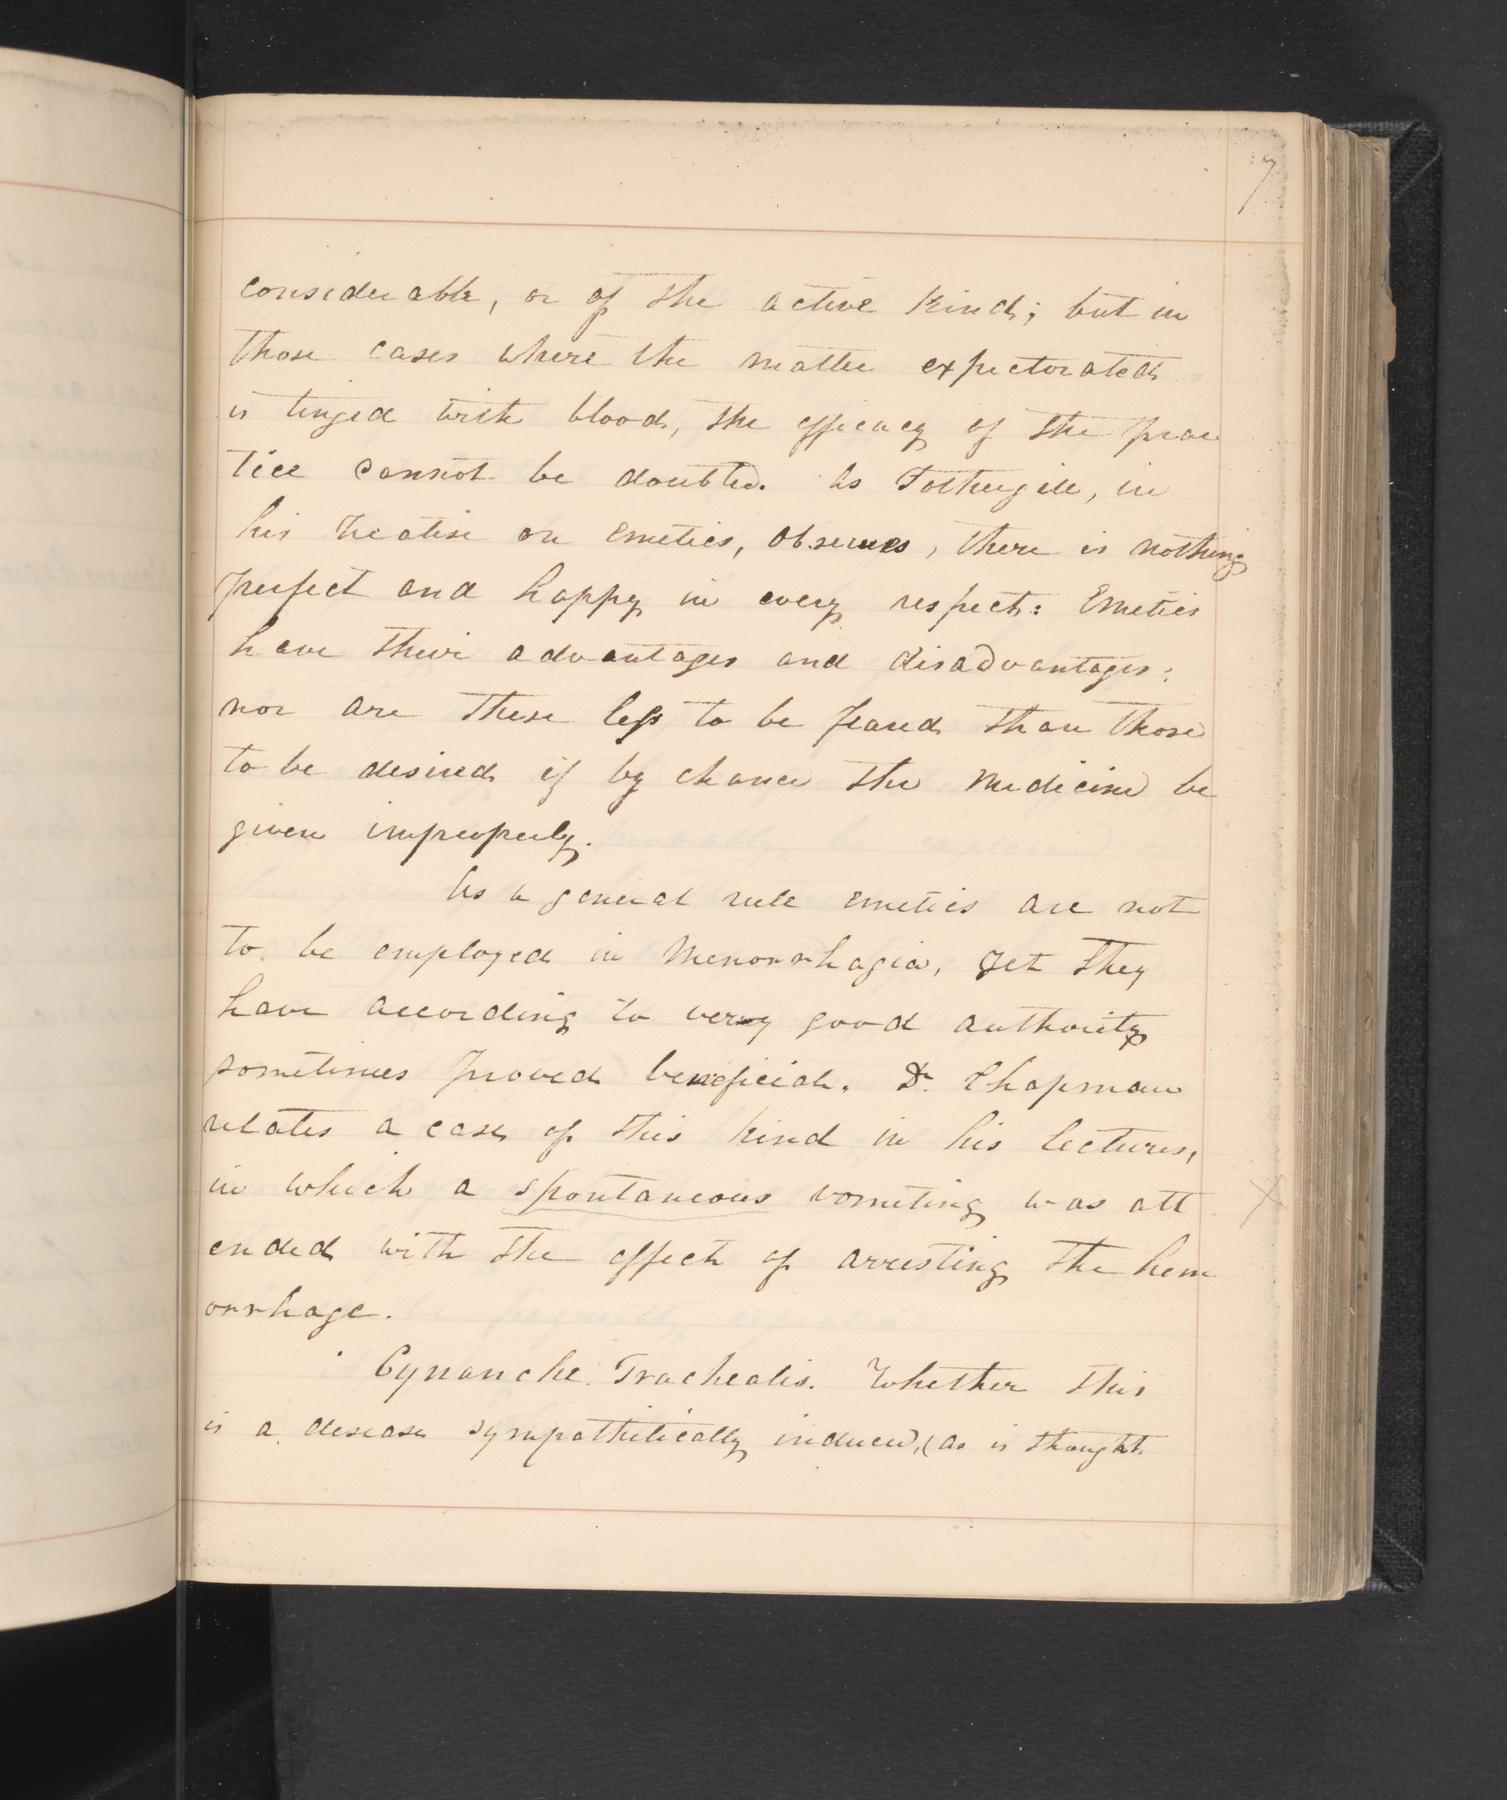 7
considerable, or of the active kind; but in
those cases where the matter expectorated
is tinged with blood, the efficacy of the prac
tice cannot be doubted. As Fothergill, in
his treatise on Emetics, observes, there is nothing
perfect and happy in every respect: Emetics
have their advantages and disadvantages:
nor are these less to be feared than those
to be desired if by chance the medicine be
given improperly.
As a general rule emetics are not
to be employed in Menorrhagia, yet they
have according to very good authority
sometimes proved beneficial. Dr. Chapman
relates a case of this kind in his lectures,
in which a spontaneous vomiting was att
ended with the effect of arresting the hem
orrhage.
Cynanche Trachealis. Whether this
is a disease sympathetically induced, (as is thought